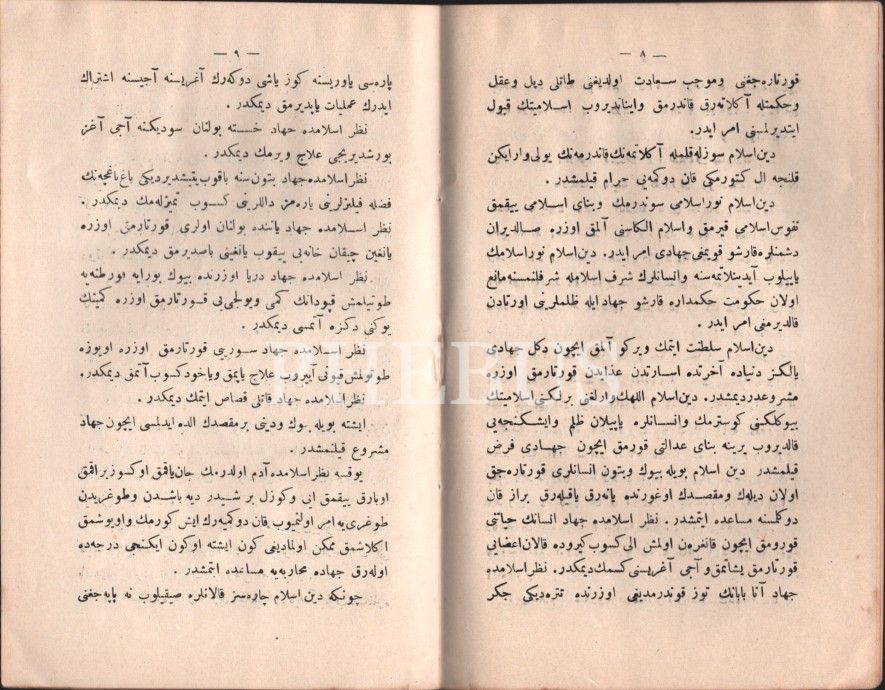 — ٨ —
قورتاره‌جغنی وموجب سعادت اولدیغنی طاتلی دیل وعقل
وحکمتله آکلاته‌رق قاندرمق واینانديروب اسلامیتك قبول
ایتدیرلمسنی امر ایدر.
دین اسلام سوزله قلمله آکلاتمه‌نك قاندرمه‌نك یولی وارایکن
قلنجه ال کتورمکی قان دوکمه‌یی حرام قیلمشدر .
دین اسلام نور اسلامی سوندرمك وبنای اسلامی ییقمق
نفوس اسلامی قیرمق واسلام الکاسنی آلمق اوزره صالدیران
دشمنلره قارشو قویمغی جهادی امر ایدر. دین اسلام نور اسلامك
یاییلوب آیدینلاتمه‌سنه وانسانلرك شرف اسلامله شرفلنمسنه مانع
اولان حکومت حکمداره قارشو جهاد ایله ظلملرینی اورتادن
قالدیرمغی امر ایدر .
دین اسلام سلطنت ایتمك ویرکو آلمق ایچون دکل جهادی
یالکز دنیاده آخرتده اسارتدن عذابدن قورتارمق اوزره
مشروعدر دیمشدر. دین اسلام اللهك وارلغنی برلکنی اسلامیتك
بیوکلکنی کوسترمك وانسانلره یاپیلان ظلم وایشکنجه‌یی
قالدیروب یرینه بنای عدالتی قورمق ایچون جهادی فرض
قیلمشدر دین اسلام بویله بیوك وبتون انسانلری قورتاره‌جق
اولان دیلك ومقصدك اوغورنده یانه‌رق یاقیله‌رق براز قان
دوکلسنه مساعده ایتمشدر . نظر اسلامده جهاد انسانك حیاتنی
قورومق ایچون قانغرەن اولمش الی کسوب کیروده قالان اعضایی
قورتارمق یشاتمق و آجی آغریسنی کسمك دیمکدر. نظر اسلامده
جهاد آنا بابانك توز قوندرمدیغی اوزرنده تتره‌دیکی جکر
— ٩ —
پاره‌سی یاوریسنه کوز یاشی دوکه‌رك آغریسنه آجیسنه اشتراك
ایدرك عملیات یاپدیرمق دیمکدر .
نظر اسلامده جهاد خسته بولنان سودیکنه آجی آغز
بورشدیریجی علاج ویرمك دیمکدر .
نظر اسلامده جهاد بتون سنه باقوب یتیشدیردیکی باغ باغچه‌نك
فضله فیلیزلرینی یارەمز داللرینی کسوب تمیزله‌مك دیمکدر .
نظر اسلامده جهاد یاننده بولنان اولری قورتارمق اوزره
یانغین چیقان خانه‌یی ییقوب یانغینی باصدیرمق دیمکدر .
نظر اسلامده جهاد دریا اوزرنده بیوك بورایه فورطنه‌یه
طوتیلمش قپودانك کمی ویولجی‌یی قورتارمق اوزره کمینك
یوکنی دکزه آتمسی دیمکدر .
نظر اسلامده جهاد سوریی قورتارمق اوزره اویوزه
طوتولمش قیونی آییروب علاج یاپمق ویاخود کسوب آتمق دیمکدر.
نظر اسلامده جهاد قاتلی قصاص ایتمك دیمکدر .
ایشته بویله بیوك ودینی بر مقصدك الده ایدلمسی ایچون جهاد
مشروع قیلنمشدر .
یوقسه نظر اسلامده آدم اولدرمك جان یاقمق اوکسوز براقمق
اوبارق ییقمق ایی وکوزل بر شیدر دیه باشدن وطوغریدن
طوغری‌یه امر اولنمیوب قان دوکمیه‌رك ایش کورمك واویوشمق
اکلاشمق ممکن اولمادیغی کون ایشته اوکون ایکنجی درجه‌ده
اوله‌رق جهاده محاربه‌یه مساعده ایتمشدر .
چونکه دین اسلام چاره‌سز قالانلره صیقیلوب نه یاپه‌جغنی
PHEBUS